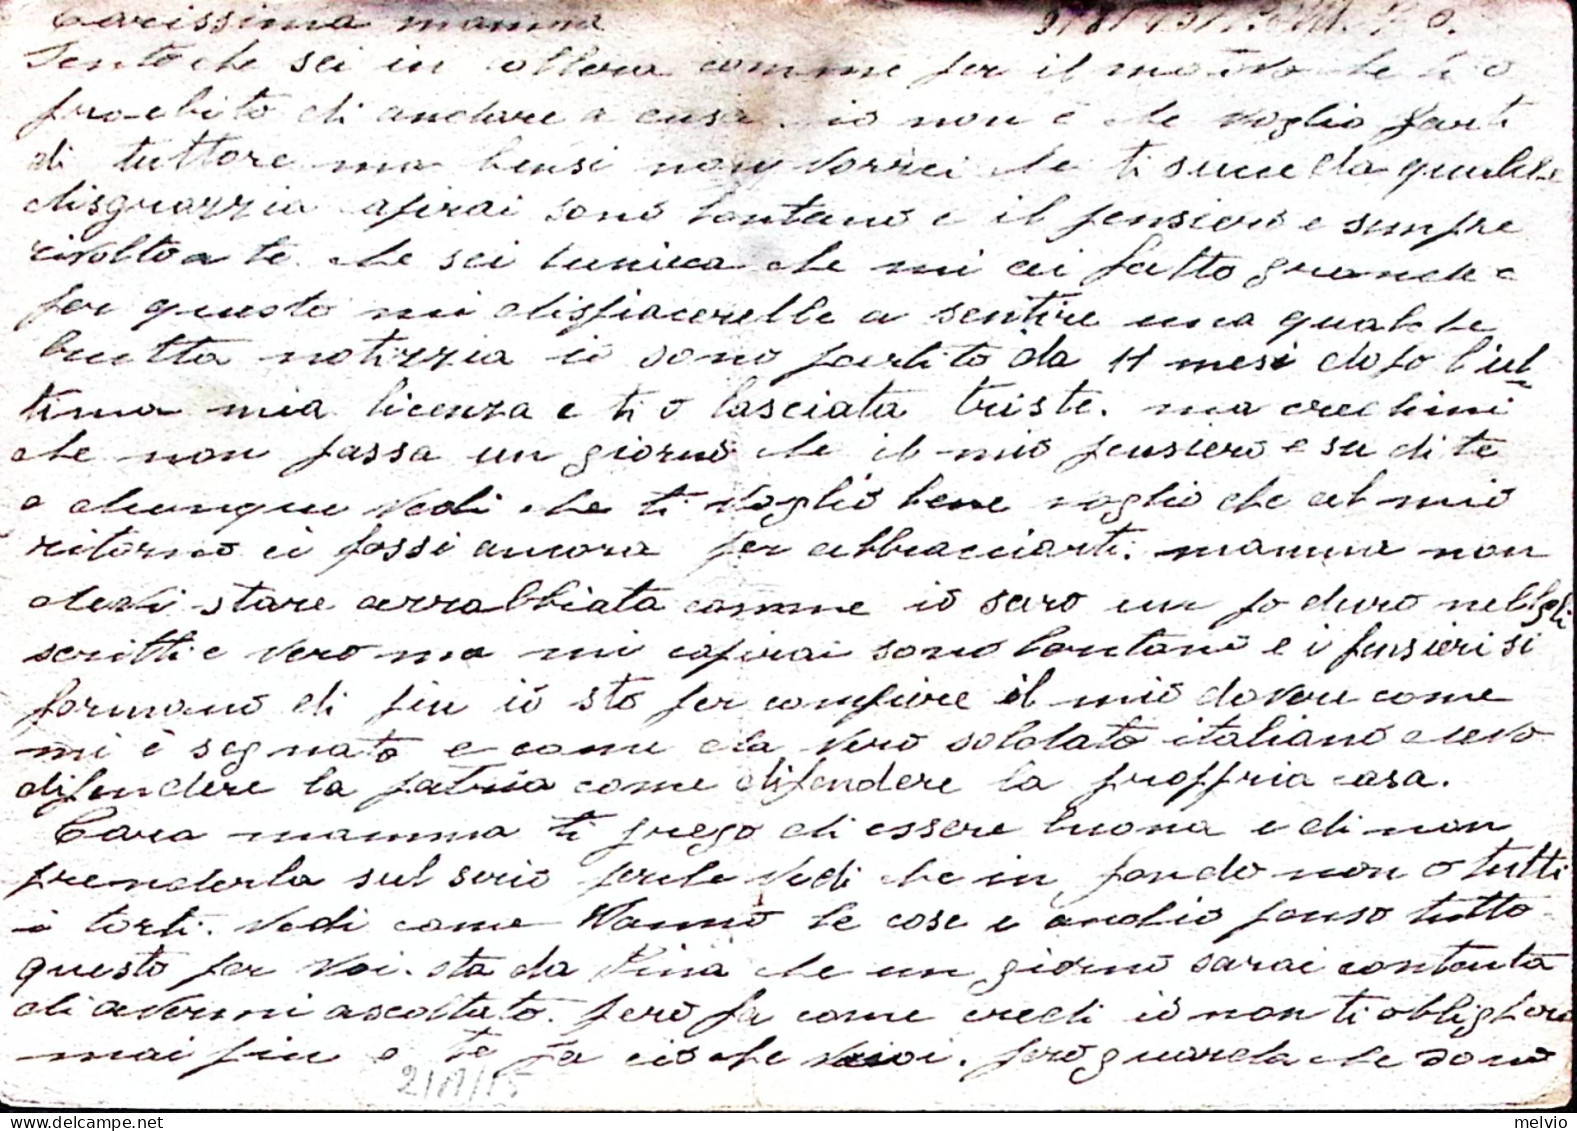 Carissima mamma
Sento che sei in collera comme per il motivo che ti o
proebito di andare a casa. io non è che voglio farti
di tuttore ma bensi non vorrei che ti succeda qualche
disguazzia capirai sono lontano e il pensiero e sempre
rivolto a te che sei lunica che mi ai fatto grande e
per questo mi dispiacerebbe a sentire una qualche
brutta notizzia io sono partito da 11 mesi dopo l'ul-
tima mia licenza e ti o lasciata triste. ma credimi
che non passa un giorno che il mio pensiero e su di te
e dunque vedi che ti voglio bene voglio che al mio
ritorno ci fossi ancora per abbracciarti. mamma non
devi stare arrabbiata comme io sero un po duro nelli gli
scritti e vero ma mi capirai sono lontano e i pensieri si
formano di piu io sto per compiere il mio dovere come
mi è segnato e come da vero soldato italiano devo
difendere la patria come difendere la proppria casa.
Cara mamma ti prego di essere buona e di non
prenderla sul serio perche vedi che in fondo non o tutti
i torti. vedi come vanno le cose e anchio penso tutto
questo per voi. sta da Pina che un giorno sarai contenta
di avermi ascoltato. pero fa come credi io non ti obblighero
mai piu e te fa cio che vuoi. pero guarda che sono
2/17/15
melvio